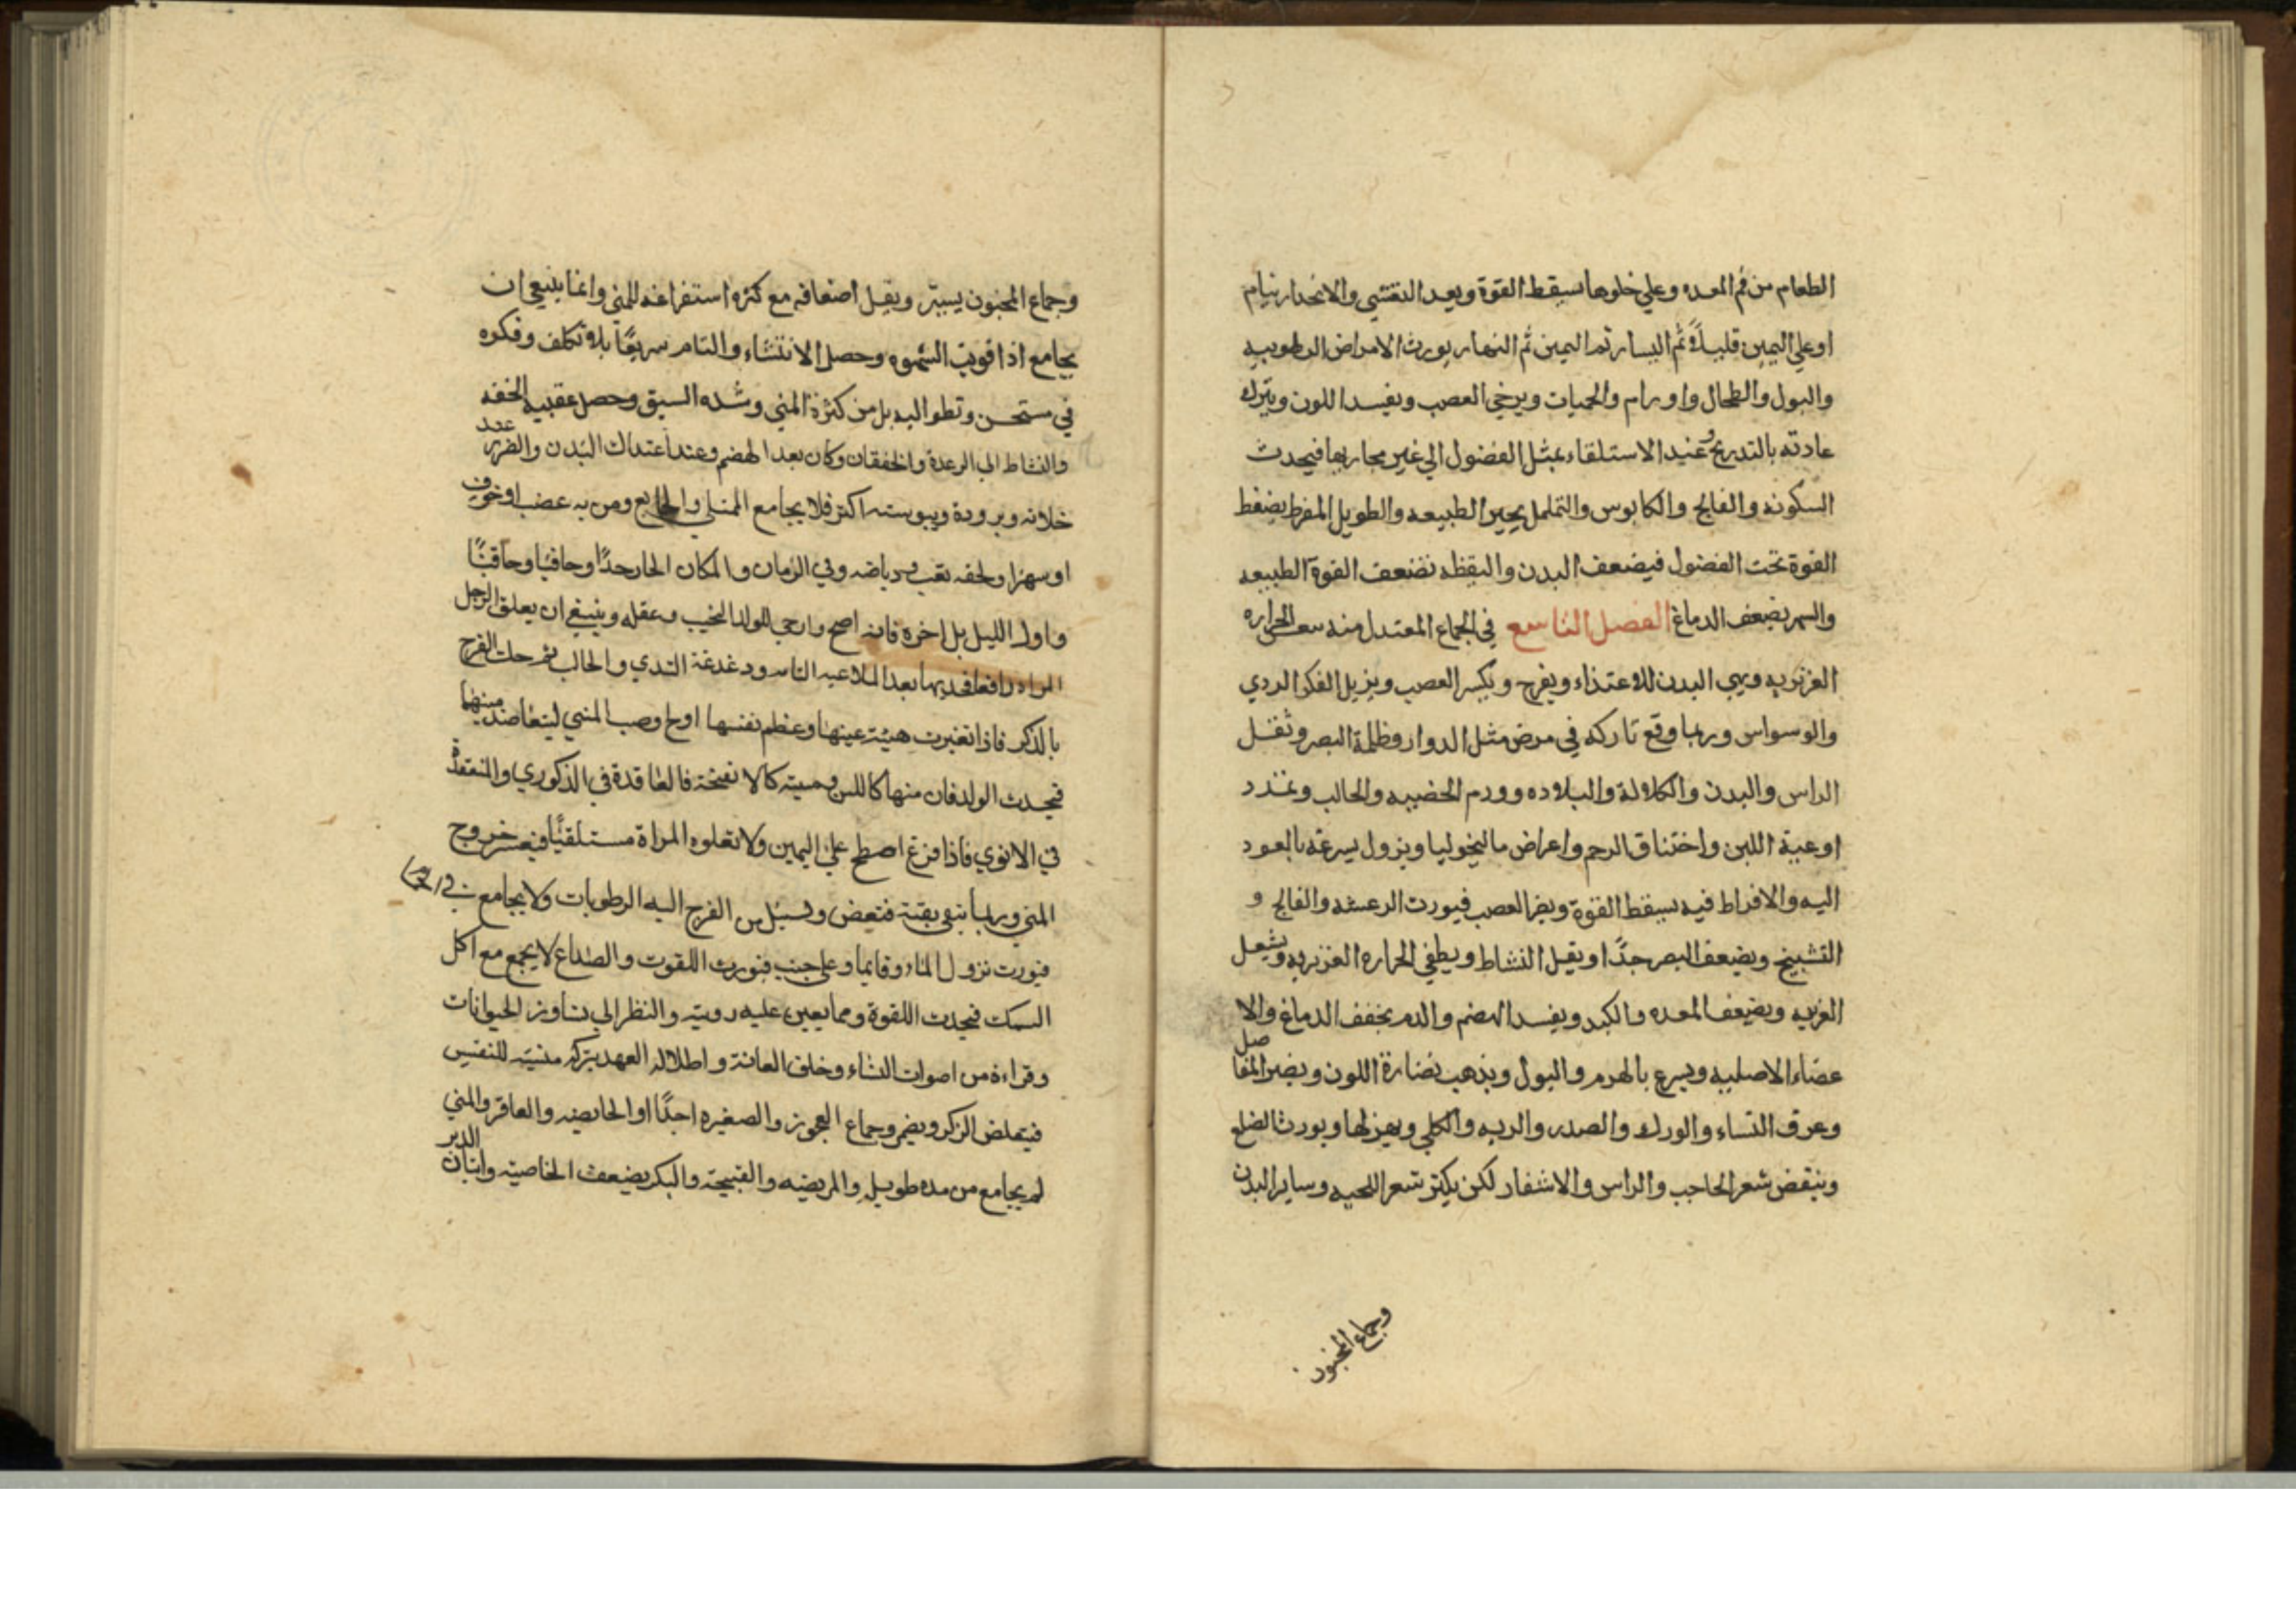 الطعام من فم المعده وعلي خلوها يسقط القوة وبعد التغشي والانحدار ينام
او علي اليمين قليلاً ثم اليسار ثم اليمين ثم النهار يورث الامراض الرطوبيه
والبول والطحال واورام والحميات ويرخي العصب ويفسد اللون ويترك
عادته بالتدريج وعند الاستلقاء يمثل الفضول الي غير مجاريها فيحدث
السكوته والفالج والكابوس والتململ يحير الطبيعه والطويل المفرط يضغط
القوة تحت الفضول فيضعف البدن واليقظه تضعف القوة الطبيعه
والسهر يضعف الدماغ الفصل التاسع في الجماع المعتدل منه الحراره
الغزيزيه ويهي البدن للاعتذاء ويفرح ويكسر العصب ويزيل الفكر الردي
والوسواس وربما وقع تاركه في مرض مثل الدوار وظلمة البصر وثقل
الراس والبدن والكلالة والبلاده وورم الخصيه والحالب وتمدد
اوعية اللبن واختناق الرحم واعراض ماليخوليا ويزول بسرعة بالعود
اليه والافراط فيه يسقط القوة ويضر العصب فيورث الرعشه والفالج و
التشنيج ويضعف البصر جدًا ويقل النشاط ويطفي الحراره الغزيزيه ويشعل
الغريبه ويضعف المعده والكبد ويفسد الهضم والدم يخفف الدماغ والا
عضاء الاصليه ويسرع بالهرم والبول ويذهب نضارة اللون ويضر المفاصل
وعرق النساء والورك والصدر والريه والكلي ويهزلها ويورث الضلع
وينقض شعر الحاجب والراس والاشفار لكن يكثر شعر اللحيه وساير البدن
وجماع المجنون
وجماع المجنون يسير ويقل اضعافه مع كثره استفراغه للمني وانما ينبغي ان
يجامع اذا قويت الشهوه وحصل الانتشاء والتام سريعًا بلا تكلف وفكره
في مستحسن وتطو اليه بل من كثرة المني وشده السبق وحصل عقبيه الخفه
والنشاط الي الرعدة والخفقان وكان بعد الهضم وعند اعتدال البدن والضرر عند
خلائه وبرودة ويبوسته اكثر فلا يجامع الممتلي والجايع ومن به غضب او خوف
او سهر او لحقه تعب ورياضه وفي الزمان والمكان الحار جدًا وحاقيا وحاقنًا
واول الليل بل اخره فانه اصح وارجي للولد النجيب وعقله وينبغي ان يعلق الرجل
المراه رافعا فخديها بعد الملاعبه التامه ودغدغة الثدي والحالب ثم حك الفرج
بالذكر فاذا تغيرت هيئة عينها وعظم نفسها اولج وصب المني ليتعاضد منيهما
فيحدث الولد فان منها كاللبن ومنيه كالانفخة فالعاقدة في الذكوري والمنعقدة
في الانوي فاذا فرغ اضطجع علي اليمين ولا تعلوه المراة مستلقيًا فيعسر خروج
المني وربما بقي بقية فتعفن وتسيل من الفرج اليه الرطوبات ولا يجامع في
فيورث نزول الماء وقايما وعلي جنب فيورث اللقوت والصداع لا يجمع مع اكل
السمك فيحدث اللقوة ومما يعين عليه رويته والنظر الي تساوز الحيوانات
وقراءة من اصوات النشاء وخلق العانة واطلاله العهد بتركه منسيه للنفس
فيتملض الزكر ويضمر وجماع العجوز والصغيره اجدًا او الحايضه والعاقر والمني
لم يجامع من مده طويله والمريضه والقبيحة والبكر يضعف الخاصيته واتيان الدبر